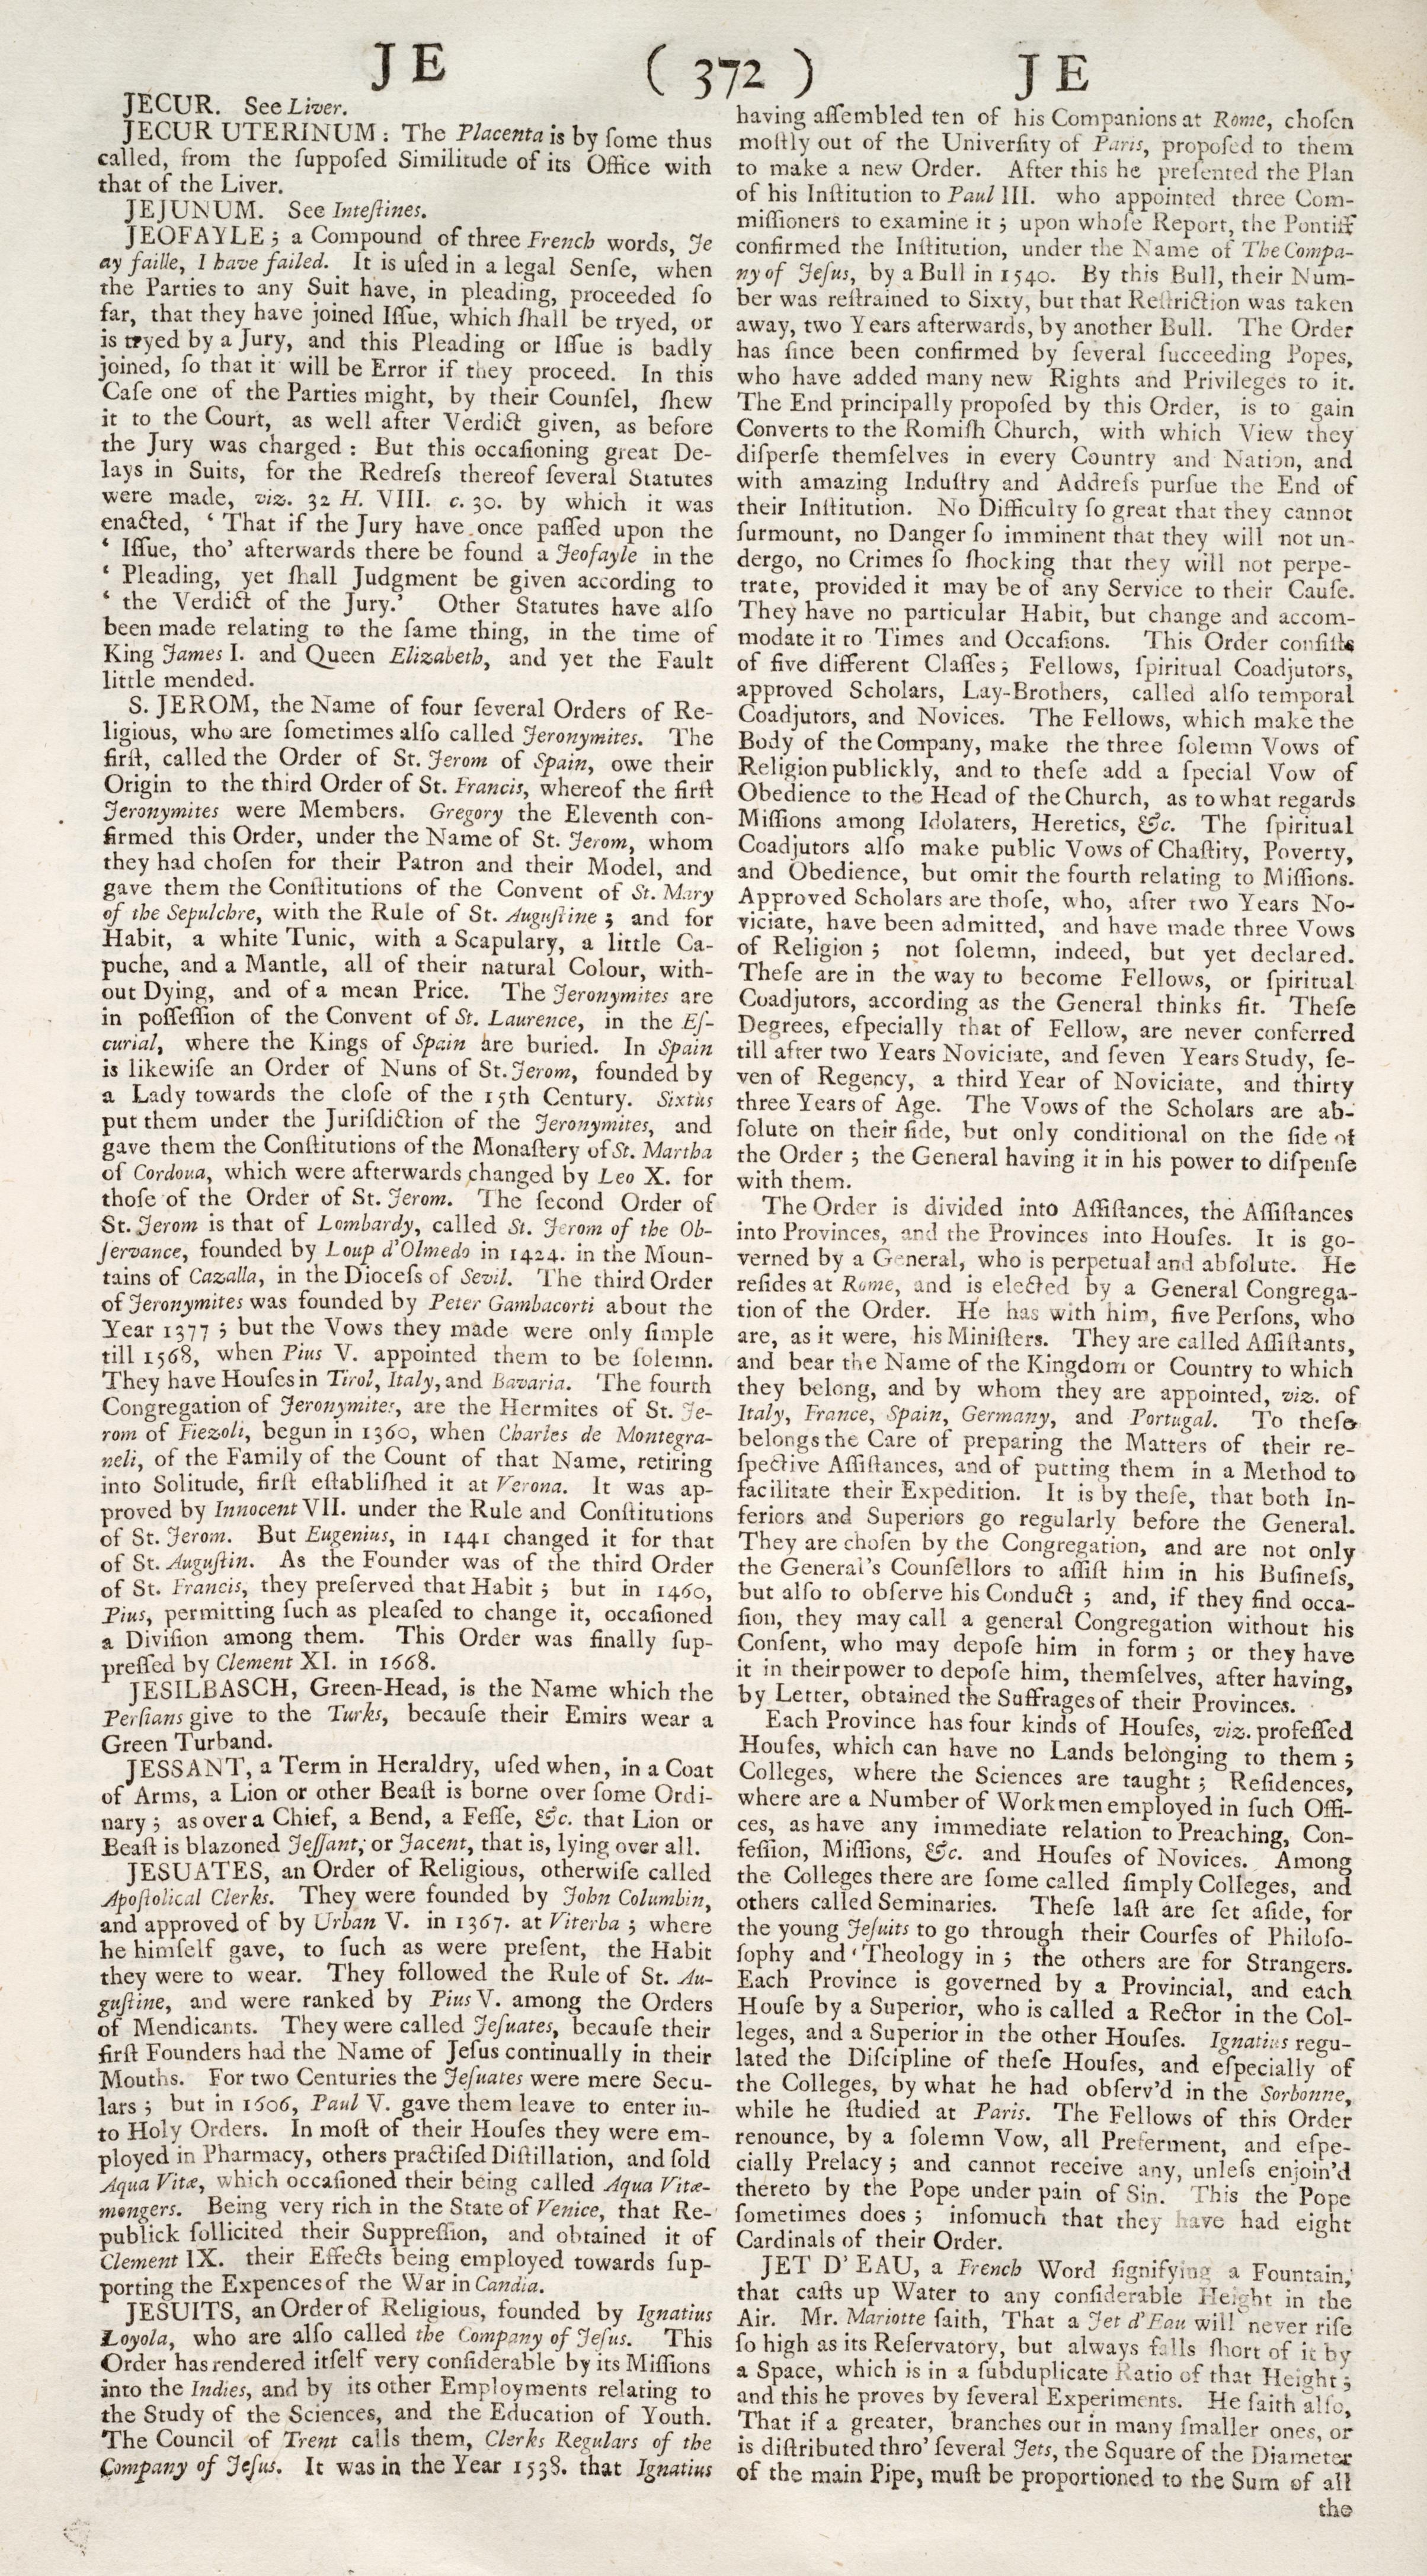 JE ( 372 ) JE
JECUR. See Liver.
JECUR UTERINUM: The Placenta is by ſome thus
called, from the ſuppoſed Similitude of its Office with
that of the Liver.
JEJUNUM. See Inteſtines.
JEOFAYLE; a Compound of three French words, Je
ay faille, I have failed. It is uſed in a legal Senſe, when
the Parties to any Suit have, in pleading, proceeded ſo
far, that they have joined Iſſue, which ſhall be tryed, or
is tryed by a Jury, and this Pleading or Iſſue is badly
joined, ſo that it will be Error if they proceed. In this
Caſe one of the Parties might, by their Counſel, ſhew
it to the Court, as well after Verdict given, as before
the Jury was charged: But this occaſioning great De-
lays in Suits, for the Redreſs thereof ſeveral Statutes
were made, viz. 32 H. VIII. c. 30. by which it was
enacted, ‘ That if the Jury have once paſſed upon the
‘ Iſſue, tho' afterwards there be found a Jeofayle in the
‘ Pleading, yet ſhall Judgment be given according to
‘ the Verdict of the Jury.’ Other Statutes have alſo
been made relating to the ſame thing, in the time of
King James I. and Queen Elizabeth, and yet the Fault
little mended.
S. JEROM, the Name of four ſeveral Orders of Re-
ligious, who are ſometimes alſo called Jeronymites. The
firſt, called the Order of St. Jerom of Spain, owe their
Origin to the third Order of St. Francis, whereof the firſt
Jeronymites were Members. Gregory the Eleventh con-
firmed this Order, under the Name of St. Jerom, whom
they had choſen for their Patron and their Model, and
gave them the Conſtitutions of the Convent of St. Mary
of the Sepulchre, with the Rule of St. Auguſtine; and for
Habit, a white Tunic, with a Scapulary, a little Ca-
puche, and a Mantle, all of their natural Colour, with-
out Dying, and of a mean Price. The Jeronymites are
in poſſeſſion of the Convent of St. Laurence, in the Eſ-
curial, where the Kings of Spain are buried. In Spain
is likewiſe an Order of Nuns of St. Jerom, founded by
a Lady towards the cloſe of the 15th Century. Sixtus
put them under the Juriſdiction of the Jeronymites, and
gave them the Conſtitutions of the Monaſtery of St. Martha
of Cordoua, which were afterwards changed by Leo X. for
thoſe of the Order of St. Jerom. The ſecond Order of
St. Jerom is that of Lombardy, called St. Jerom of the Ob-
ſervance, founded by Loup d'Olmedo in 1424. in the Moun-
tains of Cazalla, in the Dioceſs of Sevil. The third Order
of Jeronymites was founded by Peter Gambacorti about the
Year 1377; but the Vows they made were only ſimple
till 1568, when Pius V. appointed them to be ſolemn.
They have Houſes in Tirol, Italy, and Bavaria. The fourth
Congregation of Jeronymites, are the Hermites of St. Je-
rom of Fiezoli, begun in 1360, when Charles de Montegra-
neli, of the Family of the Count of that Name, retiring
into Solitude, firſt eſtabliſhed it at Verona. It was ap-
proved by Innocent VII. under the Rule and Conſtitutions
of St. Jerom. But Eugenius, in 1441 changed it for that
of St. Auguſtin. As the Founder was of the third Order
of St. Francis, they preſerved that Habit; but in 1460,
Pius, permitting ſuch as pleaſed to change it, occaſioned
a Diviſion among them. This Order was finally ſup-
preſſed by Clement XI. in 1668.
JESILBASCH, Green-Head, is the Name which the
Perſians give to the Turks, becauſe their Emirs wear a
Green Turband.
JESSANT, a Term in Heraldry, uſed when, in a Coat
of Arms, a Lion or other Beaſt is borne over ſome Ordi-
nary; as over a Chief, a Bend, a Feſſe, &c. that Lion or
Beaſt is blazoned Jeſſant, or Jacent, that is, lying over all.
JESUATES, an Order of Religious, otherwiſe called
Apoſtolical Clerks. They were founded by John Columbin,
and approved of by Urban V. in 1367. at Viterba; where
he himſelf gave, to ſuch as were preſent, the Habit
they were to wear. They followed the Rule of St. Au-
guſtine, and were ranked by Pius V. among the Orders
of Mendicants. They were called Jeſuates, becauſe their
firſt Founders had the Name of Jeſus continually in their
Mouths. For two Centuries the Jeſuates were mere Secu-
lars; but in 1606, Paul V. gave them leave to enter in-
to Holy Orders. In moſt of their Houſes they were em-
ployed in Pharmacy, others practiſed Diſtillation, and ſold
Aqua Vitæ, which occaſioned their being called Aqua Vitæ-
mongers. Being very rich in the State of Venice, that Re-
publick ſollicited their Suppreſſion, and obtained it of
Clement IX. their Effects being employed towards ſup-
porting the Expences of the War in Candia.
JESUITS, an Order of Religious, founded by Ignatius
Loyola, who are alſo called the Company of Jeſus. This
Order has rendered itſelf very conſiderable by its Miſſions
into the Indies, and by its other Employments relating to
the Study of the Sciences, and the Education of Youth.
The Council of Trent calls them, Clerks Regulars of the
Company of Jeſus. It was in the Year 1538. that Ignatius
having aſſembled ten of his Companions at Rome, choſen
moſtly out of the Univerſity of Paris, propoſed to them
to make a new Order. After this he preſented the Plan
of his Inſtitution to Paul III. who appointed three Com-
miſſioners to examine it; upon whoſe Report, the Pontiff
confirmed the Inſtitution, under the Name of The Compa-
ny of Jeſus, by a Bull in 1540. By this Bull, their Num-
ber was reſtrained to Sixty, but that Reſtriction was taken
away, two Years afterwards, by another Bull. The Order
has ſince been confirmed by ſeveral ſucceeding Popes,
who have added many new Rights and Privileges to it.
The End principally propoſed by this Order, is to gain
Converts to the Romiſh Church, with which View they
diſperſe themſelves in every Country and Nation, and
with amazing Induſtry and Addreſs purſue the End of
their Inſtitution. No Difficulty ſo great that they cannot
ſurmount, no Danger ſo imminent that they will not un-
dergo, no Crimes ſo ſhocking that they will not perpe-
trate, provided it may be of any Service to their Cauſe.
They have no particular Habit, but change and accom-
modate it to Times and Occaſions. This Order conſiſts
of five different Claſſes; Fellows, ſpiritual Coadjutors,
approved Scholars, Lay-Brothers, called alſo temporal
Coadjutors, and Novices. The Fellows, which make the
Body of the Company, make the three ſolemn Vows of
Religion publickly, and to theſe add a ſpecial Vow of
Obedience to the Head of the Church, as to what regards
Miſſions among Idolaters, Heretics, &c. The ſpiritual
Coadjutors alſo make public Vows of Chaſtity, Poverty,
and Obedience, but omit the fourth relating to Miſſions.
Approved Scholars are thoſe, who, after two Years No-
viciate, have been admitted, and have made three Vows
of Religion; not ſolemn, indeed, but yet declared.
Theſe are in the way to become Fellows, or ſpiritual
Coadjutors, according as the General thinks fit. Theſe
Degrees, eſpecially that of Fellow, are never conferred
till after two Years Noviciate, and ſeven Years Study, ſe-
ven of Regency, a third Year of Noviciate, and thirty
three Years of Age. The Vows of the Scholars are ab-
ſolute on their ſide, but only conditional on the ſide of
the Order; the General having it in his power to diſpenſe
with them.
The Order is divided into Aſſiſtances, the Aſſiſtances
into Provinces, and the Provinces into Houſes. It is go-
verned by a General, who is perpetual and abſolute. He
reſides at Rome, and is elected by a General Congrega-
tion of the Order. He has with him, five Perſons, who
are, as it were, his Miniſters. They are called Aſſiſtants,
and bear the Name of the Kingdom or Country to which
they belong, and by whom they are appointed, viz. of
Italy, France, Spain, Germany, and Portugal. To theſe
belongs the Care of preparing the Matters of their re-
ſpective Aſſiſtances, and of putting them in a Method to
facilitate their Expedition. It is by theſe, that both In-
feriors and Superiors go regularly before the General.
They are choſen by the Congregation, and are not only
the General's Counſellors to aſſiſt him in his Buſineſs,
but alſo to obſerve his Conduct; and, if they find occa-
ſion, they may call a general Congregation without his
Conſent, who may depoſe him in form; or they have
it in their power to depoſe him, themſelves, after having,
by Letter, obtained the Suffrages of their Provinces.
Each Province has four kinds of Houſes, viz. profeſſed
Houſes, which can have no Lands belonging to them;
Colleges, where the Sciences are taught; Reſidences,
where are a Number of Workmen employed in ſuch Offi-
ces, as have any immediate relation to Preaching, Con-
feſſion, Miſſions, &c. and Houſes of Novices. Among
the Colleges there are ſome called ſimply Colleges, and
others called Seminaries. Theſe laſt are ſet aſide, for
the young Jeſuits to go through their Courſes of Philoſo-
ſophy and Theology in; the others are for Strangers.
Each Province is governed by a Provincial, and each
Houſe by a Superior, who is called a Rector in the Col-
leges, and a Superior in the other Houſes. Ignatius regu-
lated the Diſcipline of theſe Houſes, and eſpecially of
the Colleges, by what he had obſerv'd in the Sorbonne,
while he ſtudied at Paris. The Fellows of this Order
renounce, by a ſolemn Vow, all Preferment, and eſpe-
cially Prelacy; and cannot receive any, unleſs enjoin'd
thereto by the Pope under pain of Sin. This the Pope
ſometimes does; inſomuch that they have had eight
Cardinals of their Order.
JET D'EAU, a French Word ſignifying a Fountain,
that caſts up Water to any conſiderable Height in the
Air. Mr. Mariotte ſaith, That a Jet d'Eau will never riſe
ſo high as its Reſervatory, but always falls ſhort of it by
a Space, which is in a ſubduplicate Ratio of that Height;
and this he proves by ſeveral Experiments. He ſaith alſo,
That if a greater, branches out in many ſmaller ones, or
is diſtributed thro' ſeveral Jets, the Square of the Diameter
of the main Pipe, muſt be proportioned to the Sum of all
the